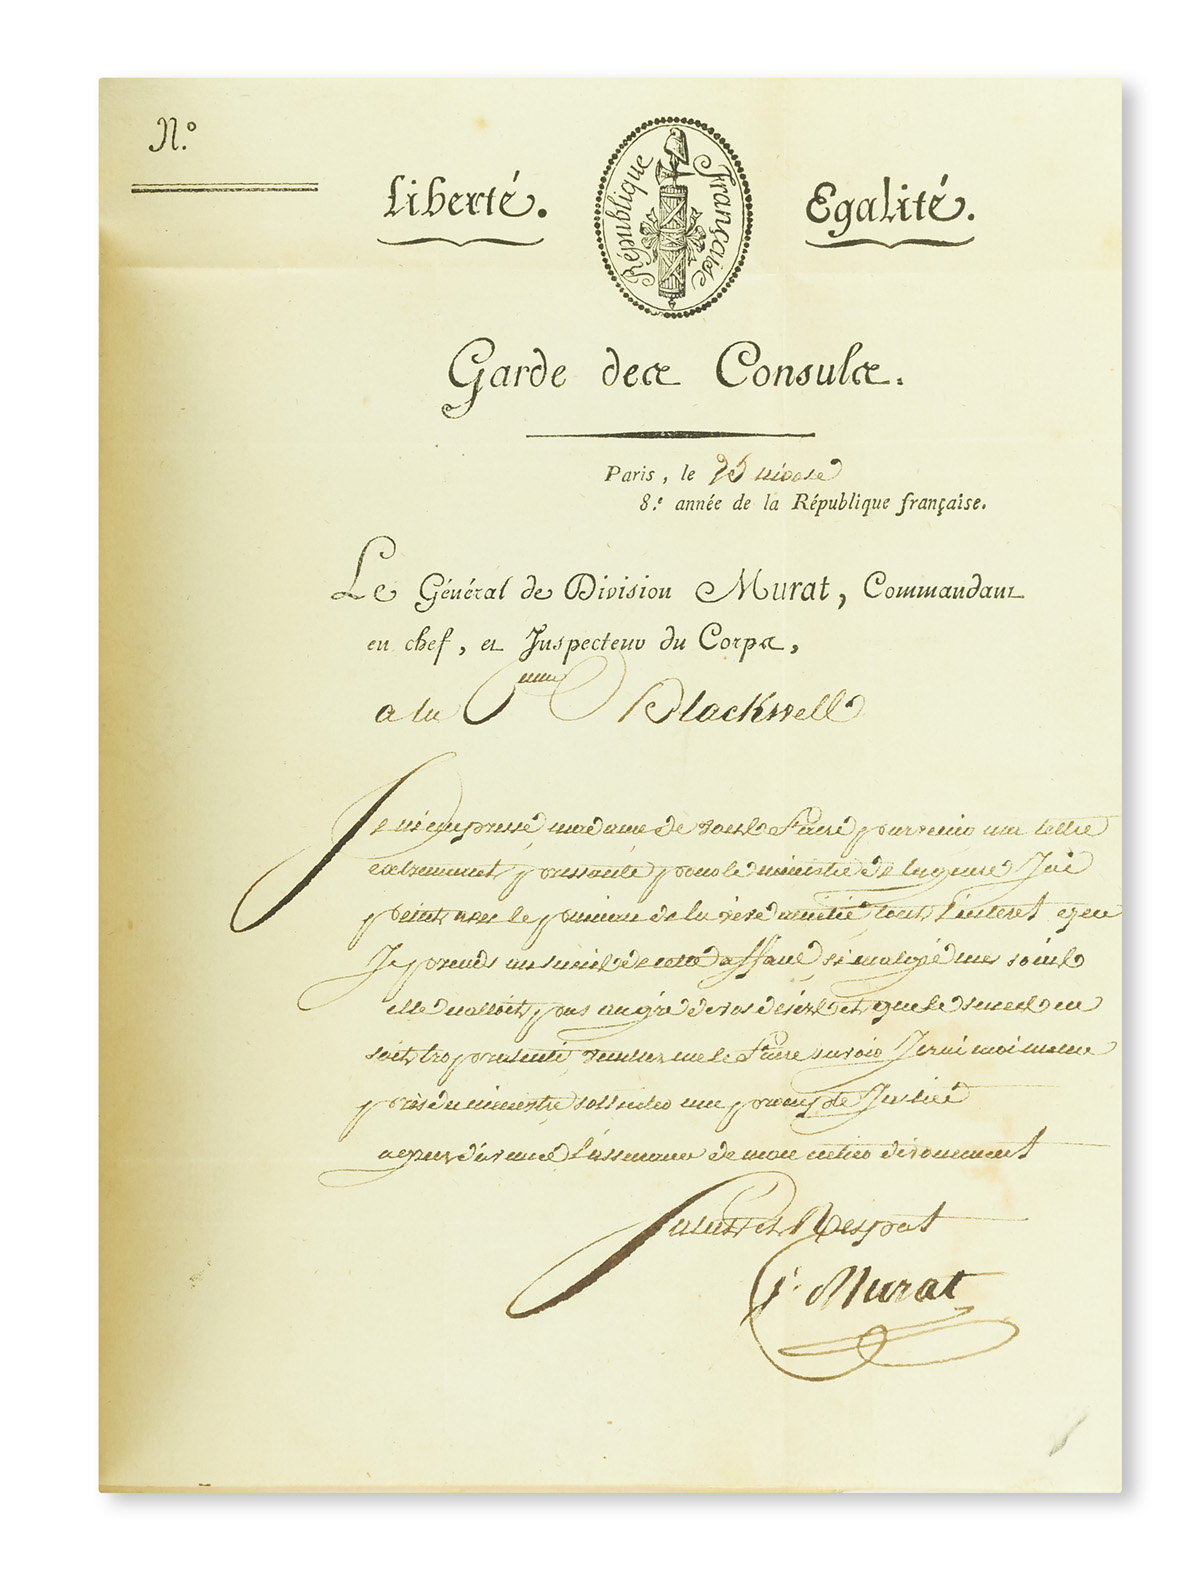 N.º
Liberté.
République Française
Egalité.
Garde des Consuls.
Paris, le 25 nivose
8.e année de la République française.
Le Général de Division Murat, Commandant
en chef, et Inspecteur du Corps,
a la C.enne Blackwell
Je m'empresse, madame de vous faire parvenir une lettre
extremement pressante pour le ministre de la guerre J'ai
peint avec le pinceau de la vive amitié, tout l'interet que
Je prends au succès de cette affaire, si malgré mes soins
elle n'alloit, pas au gré de vos désirs et que le succès en
soit trop ralenti, veuillez me le faire savoir J'irai moi meme
près du ministre solliciter une prompte Justice
agréez d'avance l'assurance de mon entier dévouement
Salut et Respect
J. Murat